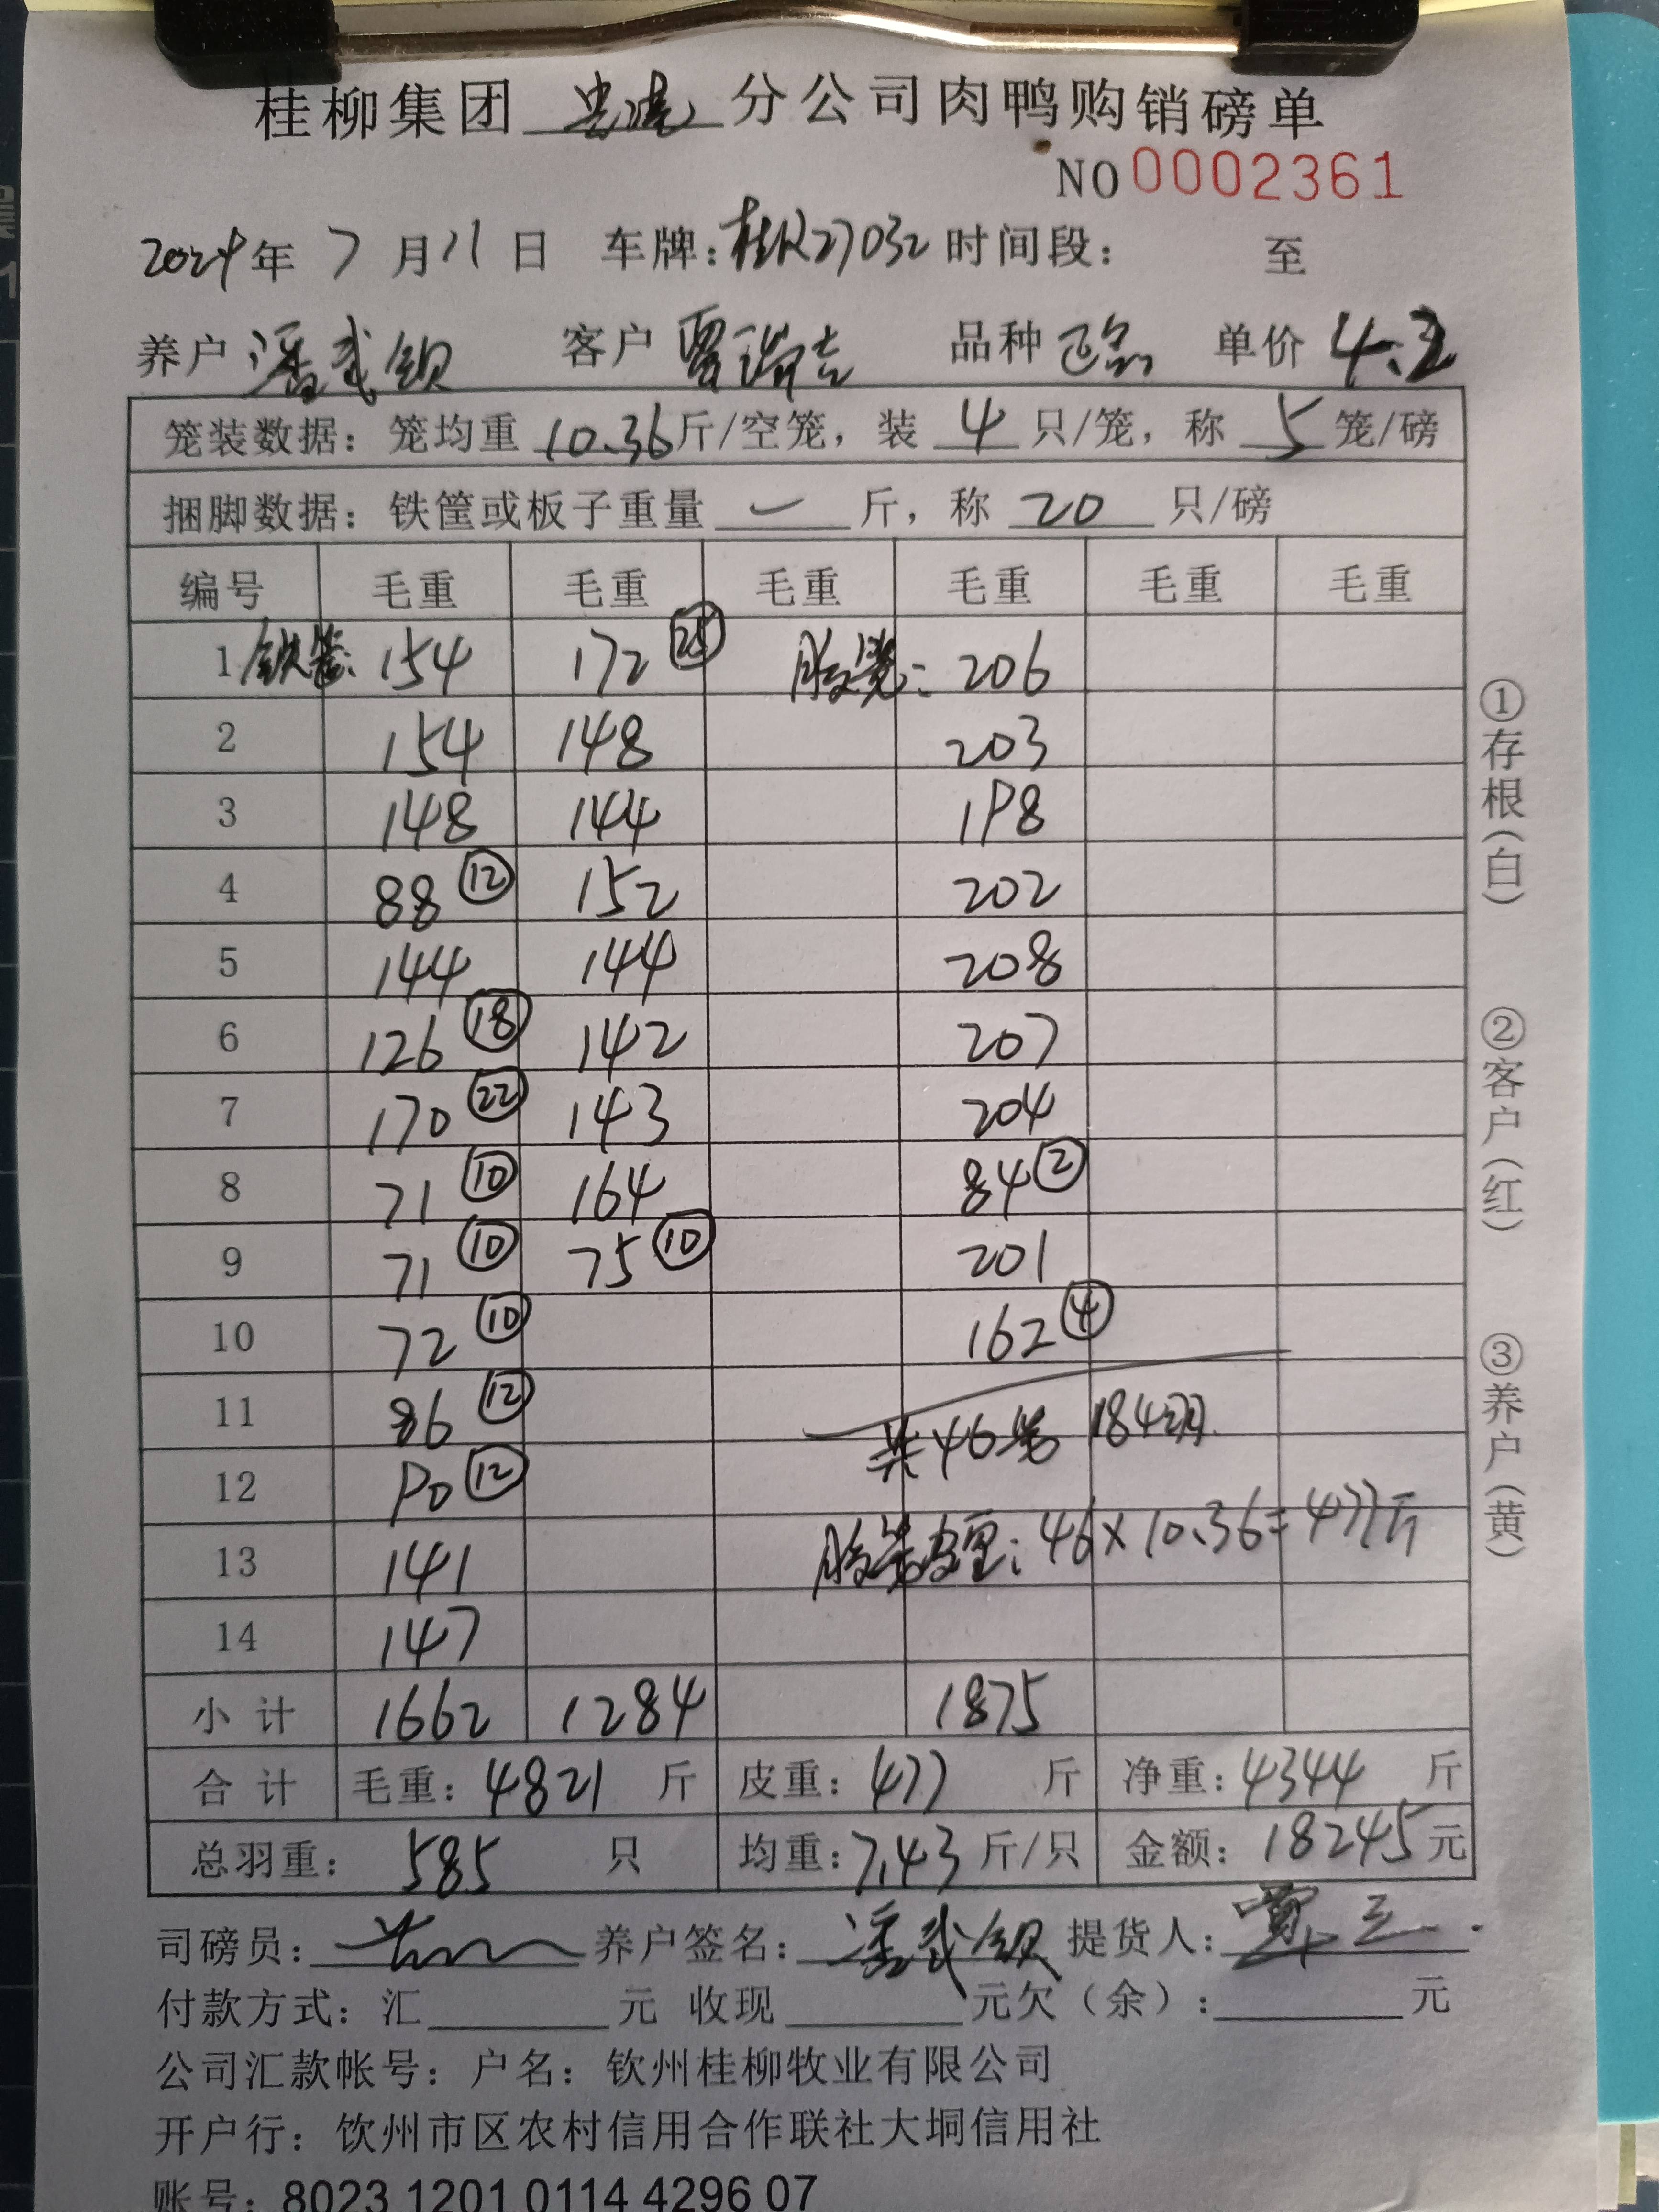 桂柳集团 分公司肉鸭购销磅单
NO 0002361
2024年 7月 11日 车牌:桂R27032 时间段: 至
养户 潘武钦 客户 覃瑞吉 品种 单价 4.2
笼装数据: 笼均重 10.36 斤/空笼, 装 4 只/笼, 称 5 笼/磅
捆脚数据: 铁筐或板子重量 一 斤, 称 20 只/磅
编号 毛重 毛重 毛重 毛重 毛重 毛重
1 铁笼: 154 172 ㉕ 胶笼: 206
2 154 148 203
3 148 144 198
4 88 ⑫ 152 202
5 144 144 208
6 126 ⑱ 142 207
7 170 ㉒ 143 204
8 71 ⑩ 164 84 ②
9 71 ⑩ 75 ⑩ 201
10 72 ⑩ 162 ④
11 86 ⑫ 共46笼 184羽
12 90 ⑫
13 141 胶笼皮重: 46×10.36=477斤
14 147
小计 1662 1284 1875
合计 毛重: 4821 斤 皮重: 477 斤 净重: 4344 斤
总羽重: 585 只 均重: 7.43 斤/只 金额: 18245 元
司磅员: 养户签名: 潘武钦 提货人:
付款方式: 汇 元 收现 元欠(余): 元
公司汇款帐号: 户名: 钦州桂柳牧业有限公司
开户行: 钦州市区农村信用合作联社大垌信用社
账号: 8023 1201 0114 4296 07
①存根(白) ②客户(红) ③养户(黄)